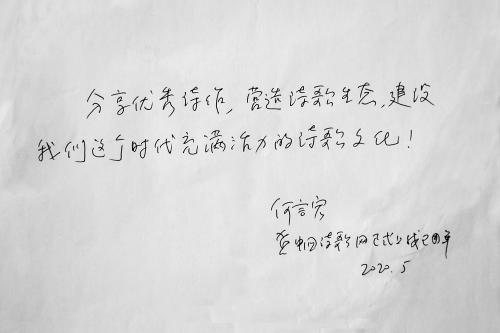 分享优秀诗作，营造诗歌生态，建设
我们这个时代充满活力的诗歌文化！
何言宏
贺中国诗歌网正式上线五周年
2020.5